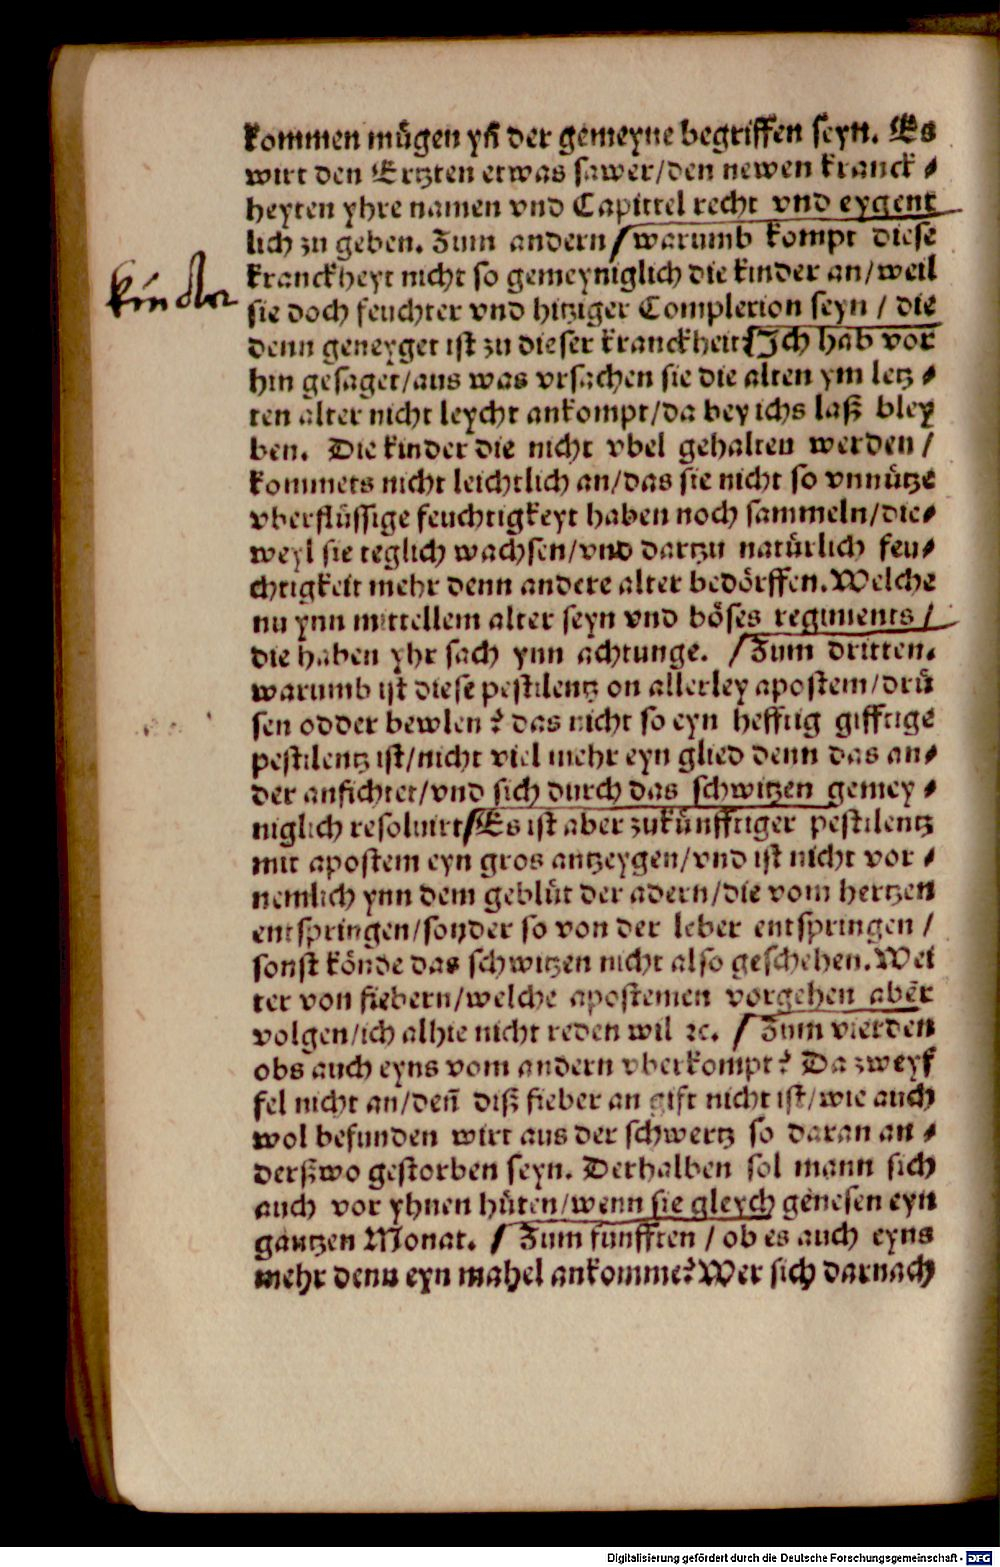 kommen mügen yñ der gemeyne begriffen seyn. Es
wirt den Ertzten etwas sawer/den newen kranck⸗
heyten yhre namen vnd Capittel recht vnd eygent
lich zu geben. Zum andern/warumb kompt diese
kranckheyt nicht so gemeyniglich die kinder an/weil
kinder
sie doch feuchter vnd hitziger Complexion seyn / die
denn geneyget ist zu dieser kranckheit[Ich hab vor
hin gesaget/aus was vrsachen sie die alten ym letz⸗
ten alter nicht leycht ankompt/da bey ichs laß bley
ben. Die kinder die nicht vbel gehalten werden/
kommets nicht leichtlich an/das sie nicht so vnnütze
vberflüssige feuchtigkeyt haben noch sammeln/die⸗
weyl sie teglich wachsen/vnd dartzu natürlich feu⸗
chtigkeit mehr denn andere alter bedörffen. Welche
nu ynn mittellem alter seyn vnd böses regiments/
die haben yhr sach ynn achtunge. /Zum dritten.
warumb ist diese pestilentz on allerley apostem/drü
sen odder bewlen? das nicht so eyn hefftig gifftige
pestilentz ist/nicht viel mehr eyn glied denn das an⸗
der anfichtet/vnd sich durch das schwitzen gemey⸗
niglich resoluirt/Es ist aber zukünfftiger pestilentz
mit apostem eyn gros antzeygen/vnd ist nicht vor⸗
nemlich ynn dem geblüt der adern/die vom hertzen
entspringen/sonder so von der leber entspringen/
sonst könde das schwitzen nicht also geschehen. Wei
ter von fiebern/welche apostemen vorgehen aber
volgen/ich alhie nicht reden wil ꝛc. /Zum vierden
obs auch eyns vom andern vberkompt? Da zweyf
fel nicht an/deñ diß fieber an gift nicht ist/wie auch
wol befunden wirt aus der schwertz so daran an⸗
derßwo gestorben seyn. Derhalben sol mann sich
auch vor yhnen hüten/wenn sie gleych genesen eyn
gantzen Monat. /Zum funfften / ob es auch eyns
mehr denn eyn mahel ankomme? Wer sich darnach
Digitalisierung gefördert durch die Deutsche Forschungsgemeinschaft - DFG